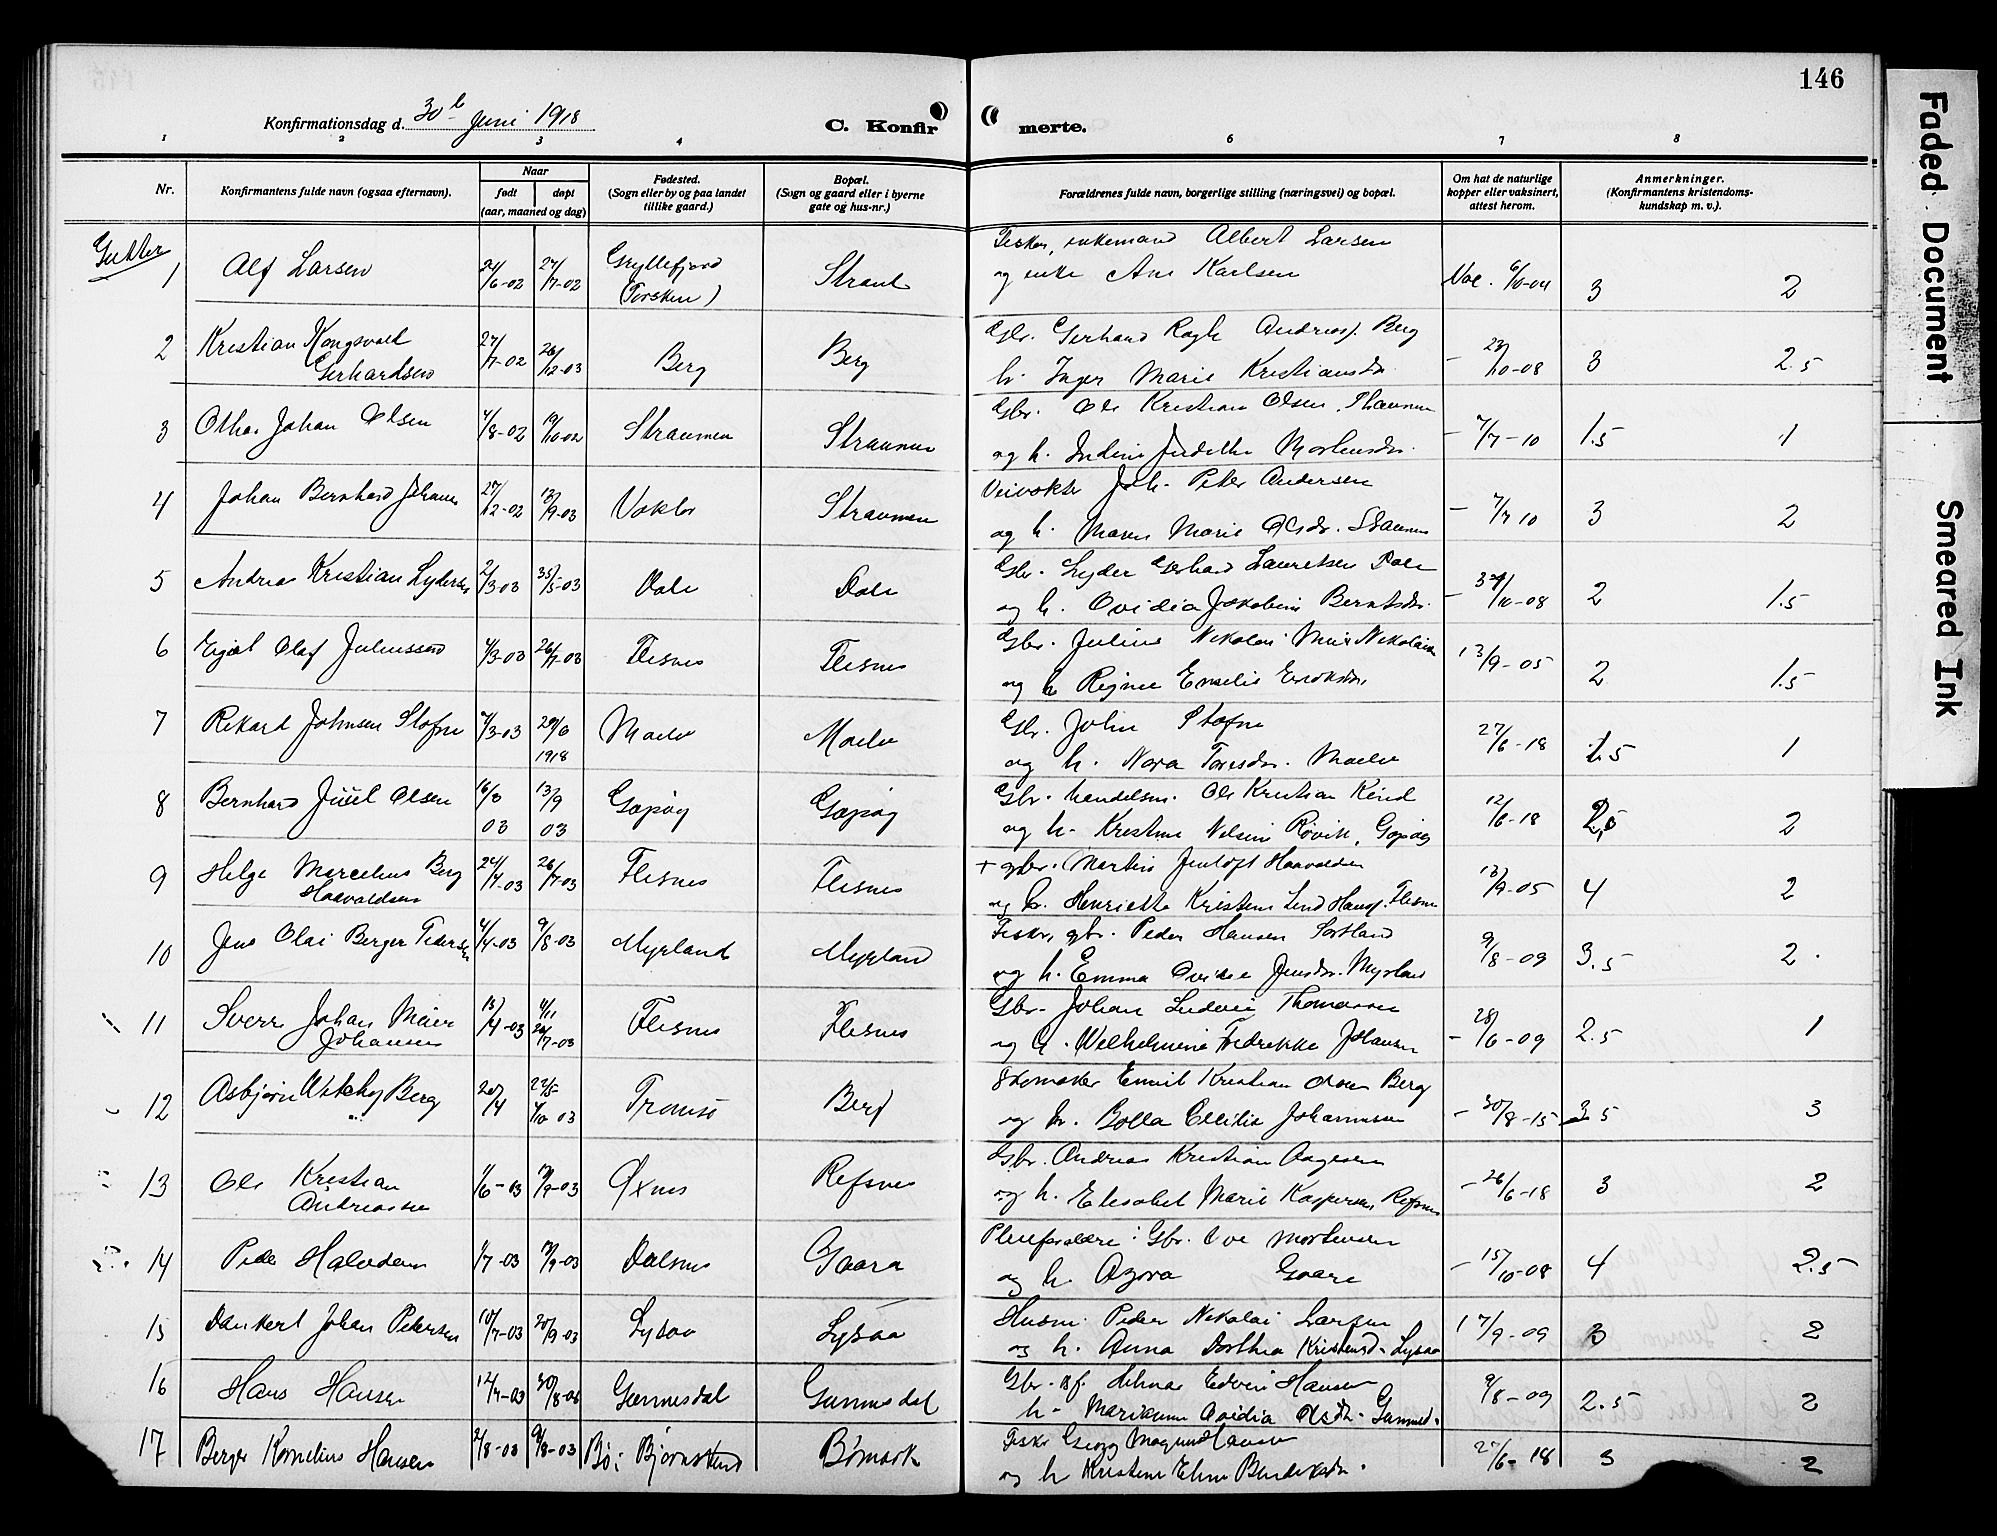 146
Konfirmationsdag d. 30te Juni 1918
C. Konfirmerte.
1 2 3 4 6 7 8
Nr.
Konfirmantens fulde navn (ogsaa efternavn).
Naar
født
døpt
(aar, maaned og dag)
Fødested.
(Sogn eller by og paa landet
tillike gaard.)
Bopæl.
(Sogn og gaard eller i byerne
gate og hus-nr.)
Forældrenes fulde navn, borgerlige stilling (næringsvei) og bopæl.
Om hat de naturlige
kopper eller vaksinert,
attest herom.
Anmerkninger.
(Konfirmantens kristendoms-
kundskap m. v.).
Gutter
1 Alf Larsen 24/6-02 27/7-02 Gryllefjord (Torsken) Strand
Fisker, enkemand Albert Larsen
og enke Ane Karlsen 6/10-04 3 2
2 Kristian Kongsvold
Gerhardsen 27/7-02 26/12-03 Berg Berg
Gbr. Gerhard Andreas. Berg
h. Inger Marie Kristiansdr. - 23/10-08 3 2.5
3 Othar Johan Olsen 4/8-02 19/10-02 Straumen Straumen
Gbr. Ole Kristian Olsen, Straumen
og h. Indine Judithe Mortensdr. - 7/7-10 1.5 1
4 Johan Bernhard Johans 27/12-02 13/9-03 Vaklv Straumen
Veivokter Joh. Peter Andersen
og h. Maren Marie Olsdr. Straumen - 7/7 10 3 2
5 Andreas Kristian Lydersen 2/3-03 Dale Dale
Gbr. Lyder Gerhard Lauritsen Dale
og h. Ovidia Jakobine Berntsdr. 2 1.5
6 Eigil Olaf Juliussen 4/3-03 26/7-03 Flesnes Flesnes
Gbr. Julius Nikolai Meier Nikolaisen
og h Regine Emelie Eriksdr. 13/9-05 2 1.5
7 Rikard Johnsen Stofne 7/3-03 29/6 1918 Maele Maele
Gbr. John Stofne
og h. Nora Toresdr. Maele 27/6-18 1.5 1
8 Bernhard Juel Olsen 16/3 03 13/9 03 Gapøy Gapøy
Gbr. handelsm. Ole Kristian Keiud
og h. Kristine Nelsine Røvik, Gapøy 12/6-18 2,5 2
9 Helge Marcelius Berg
Haavaldsen 24/4-03 26/7-03 Flesnes Flesnes
+ gbr. Martin Jentoft Haavaldsen
og h. Henriette Kristine Lind Hansd. Flesnes 13/9-05 4 2
10 Jens Olai Berger Pedersen 4/4-03 9/8-03 Myrland Myrland
Fisker, gbr. Peder Hansen Sortland
og h. Emma Ovidie Jensdr. Myrland 9/8-09 3.5 2
11 Sverre Johan Meier
Johansen 13/4-03 26/7-03 Flesnes Flesnes
Gbr. Johan Ludvig Thomassen
og h. Wilhelmine Fredrikke Johansen - 28/6-09 2.5 1
12 Asbjørn Berg 20/4 4/10 03 Tromsø Berg
Skomaker Emil Kristian Olsen Berg
og h. Bolla Cecilie Johannesen - 30/8-15 3.5 3
13 Ole Kristian
Andreassen 1/6-03 13/9-03 Øxnes Refsnes
Gbr. Andreas Kristian Aagesen
og h. Elisabet Marie Kaspersen, Refsnes - 26/6-18 3 2
14 Peder Halvdan 1/7-03 13/9-03 Dalsnes Gaara
Pleieforældre: Gbr. Ove Mortensen
og h. Azora Gaare - 15/10-08 4 2.5
15 Dankert Johan Petersen 10/7-03 20/9-03 Lysaa Lysaa
Husm. Peder Nikolai Larsen
og h. Anna Dorthea Kristensd. Lysaa 17/9-09 3 2
16 Hans Hansen 12/7-03 Gammesdal Gummesdal
Gbr. Hilmar Edvin Hansen
h. Marianne Ovidia Olsdr. 9/8-09 2.5 2
17 Berger Kornelius Hansen 2/8-03 9/8-03 Bø: Bjørnskind Bømark
Fisker Georg Magnus Hansen
og h Kristine Eline Bendiksdr. 27/6-18 3 2
Faded Document
Smeared Ink